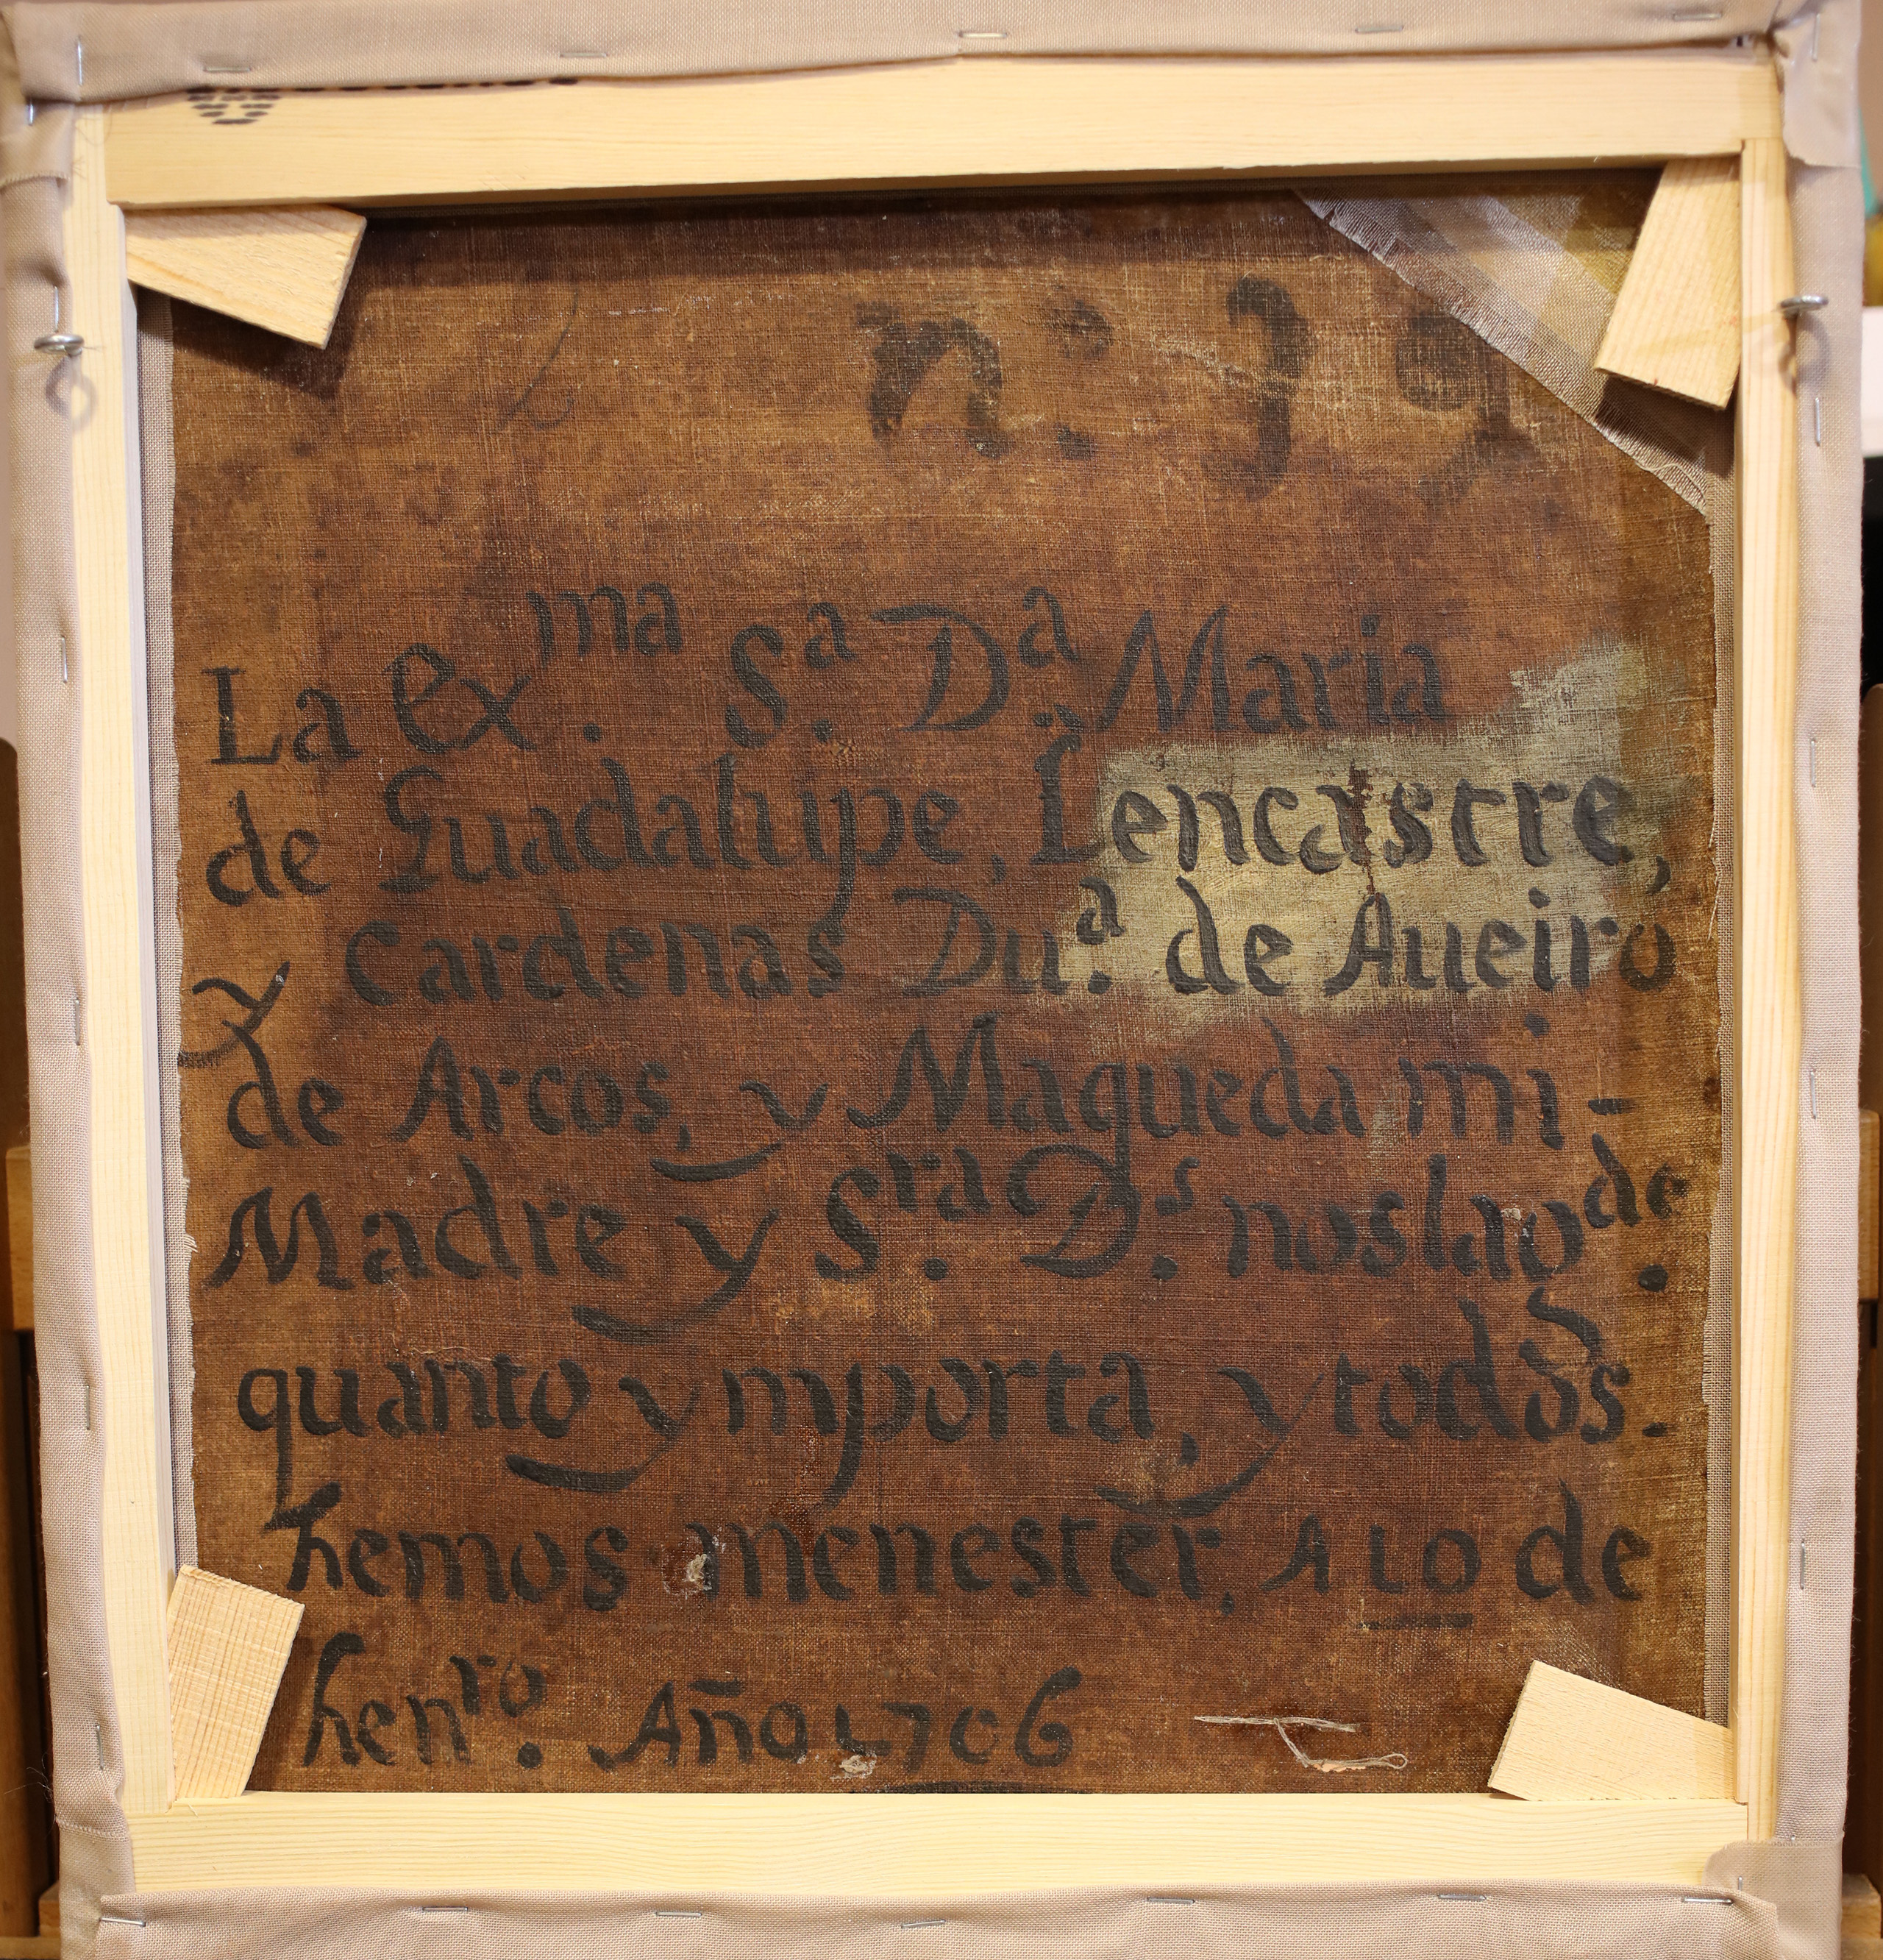 nº: 39
La exma. Sa. Da. Maria
de Guadalupe, Lencastre,
y Cardenas Dua. de Aueiro
de Arcos, y Maqueda mi-
Madre y Sra. Ds. nos la ode.
quanto ymporta, y todos.
hemos menester, A 10 de
henro. Año 1706